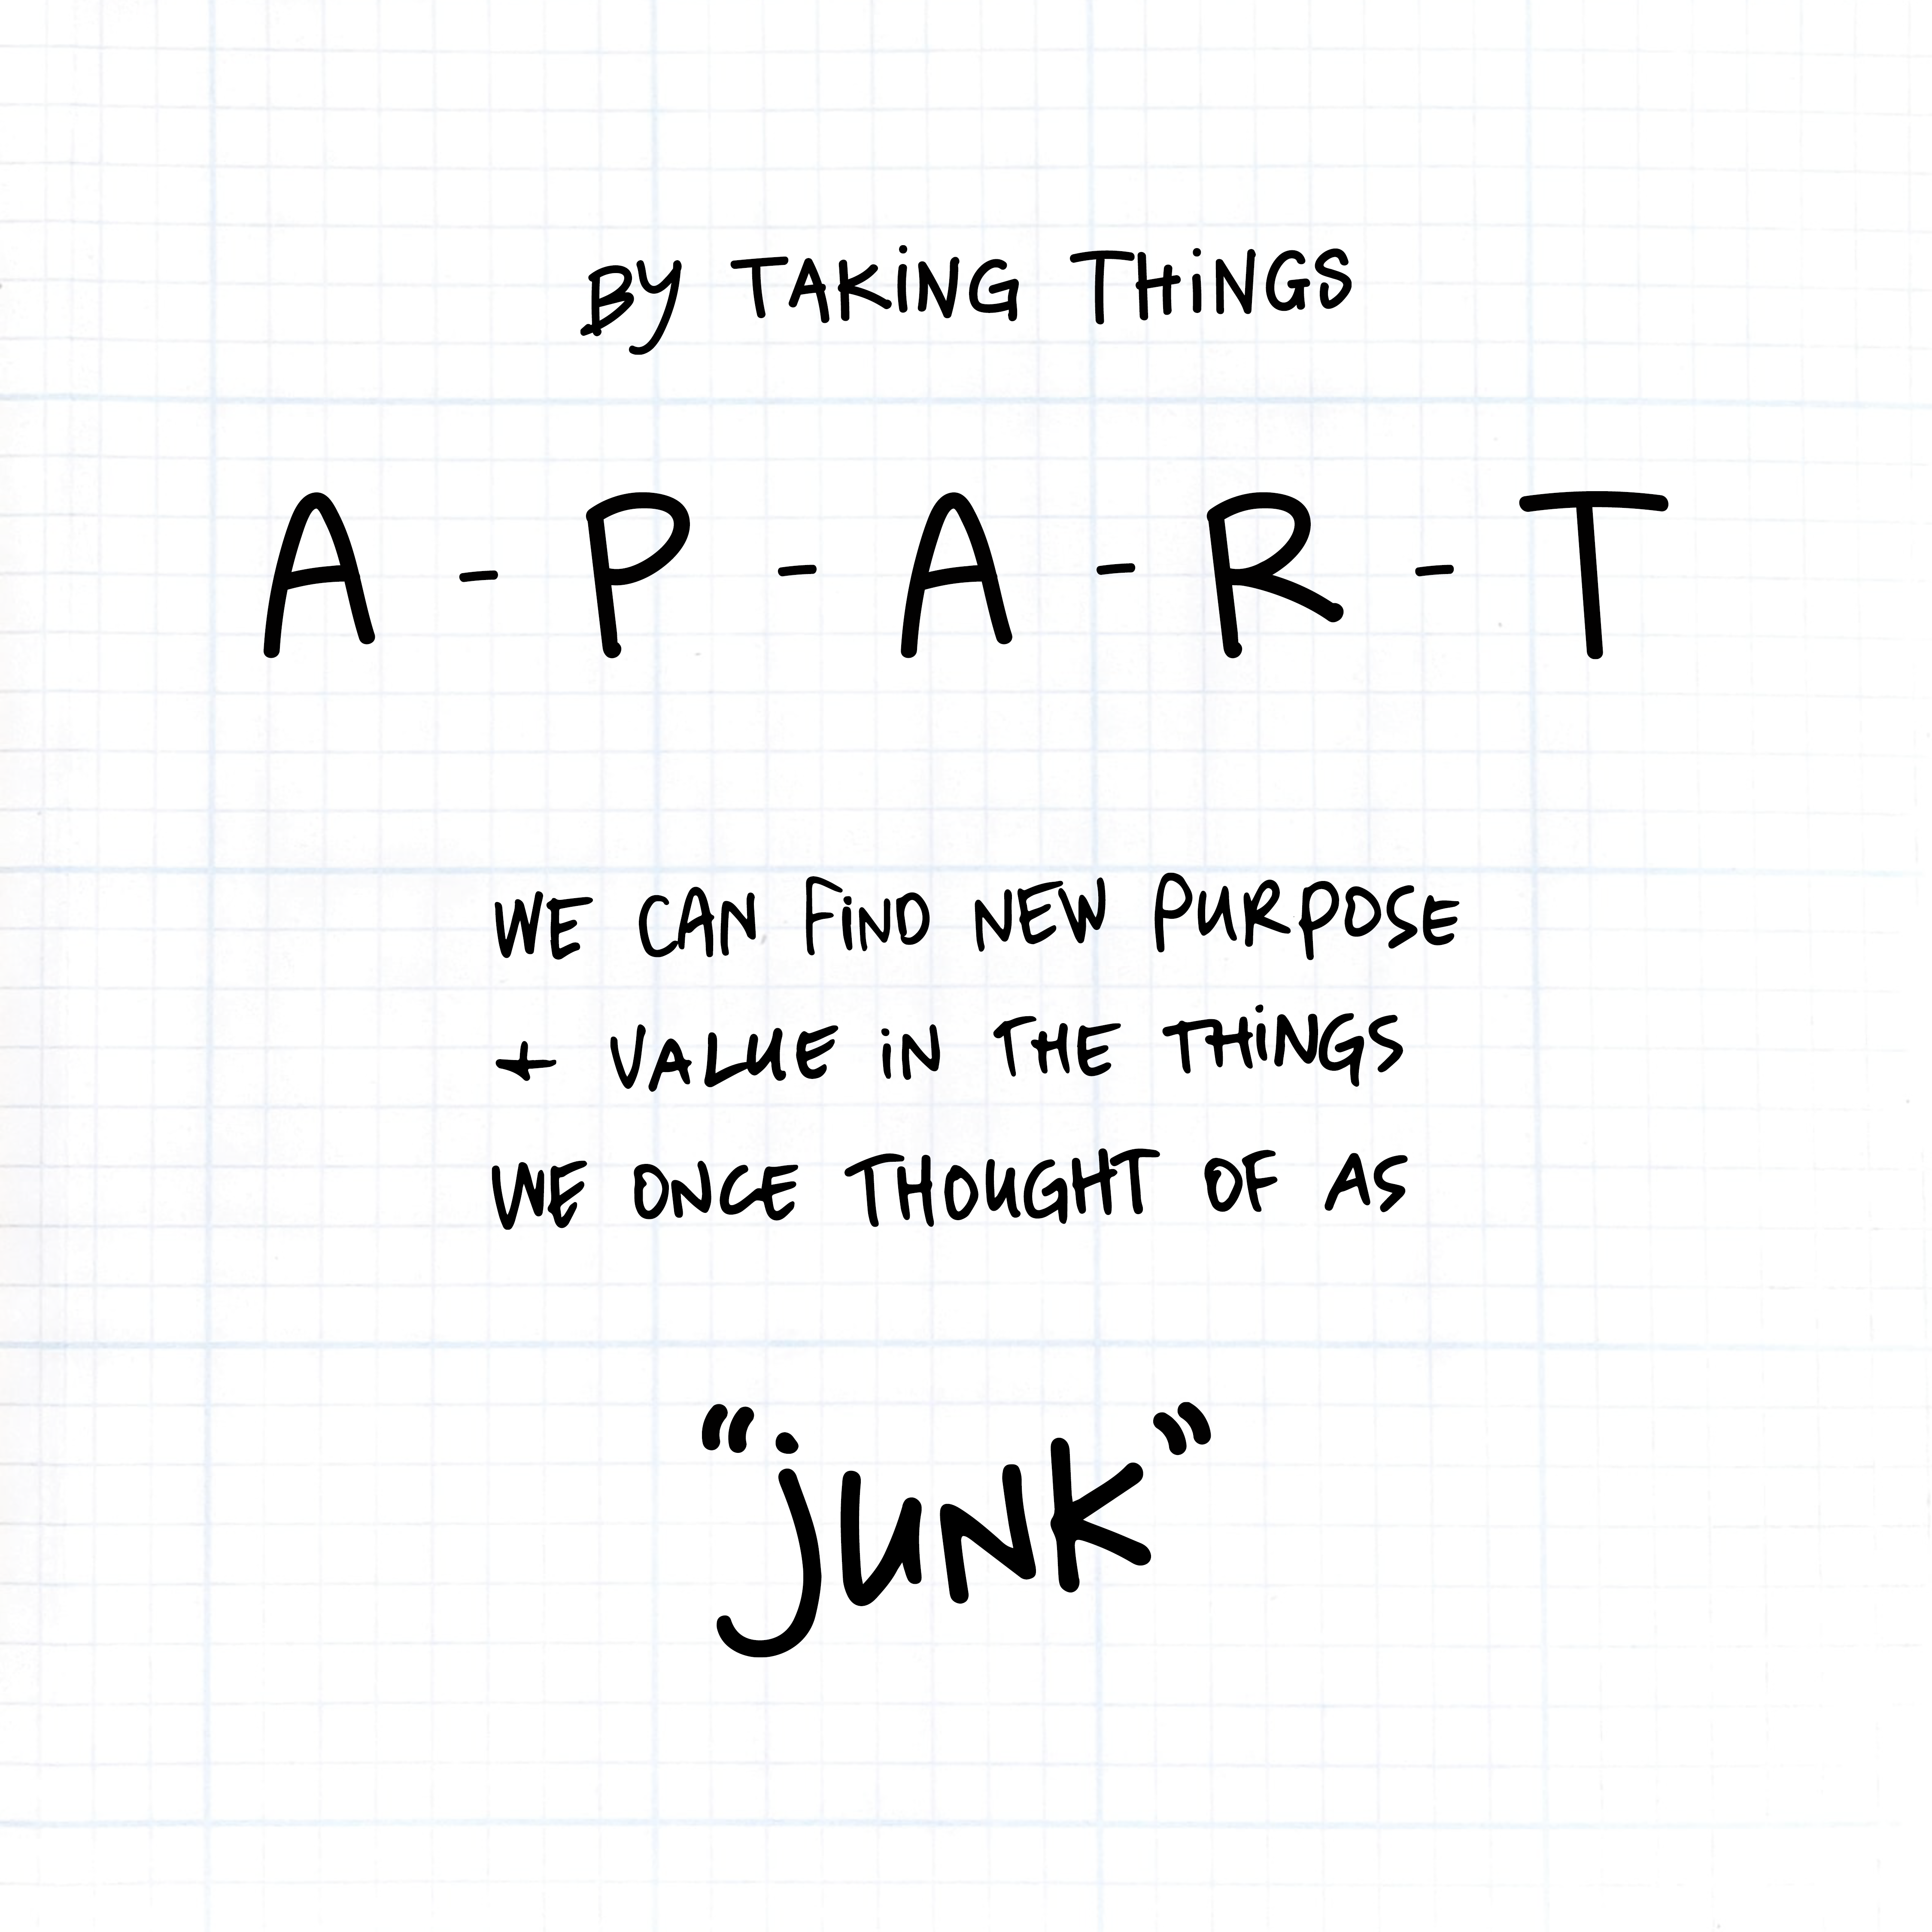 By TAKiNG THiNGS
A - P - A - R - T
WE CAN FiND NEW PURPOSE
+ VALUE iN THE THiNGS
WE ONCE THOUGHT OF AS
“jUNK”